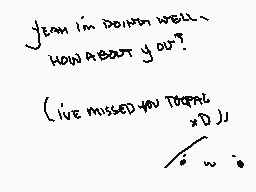 yeah i'm doing well~
how about you?
(i've missed you too pal
xD ))